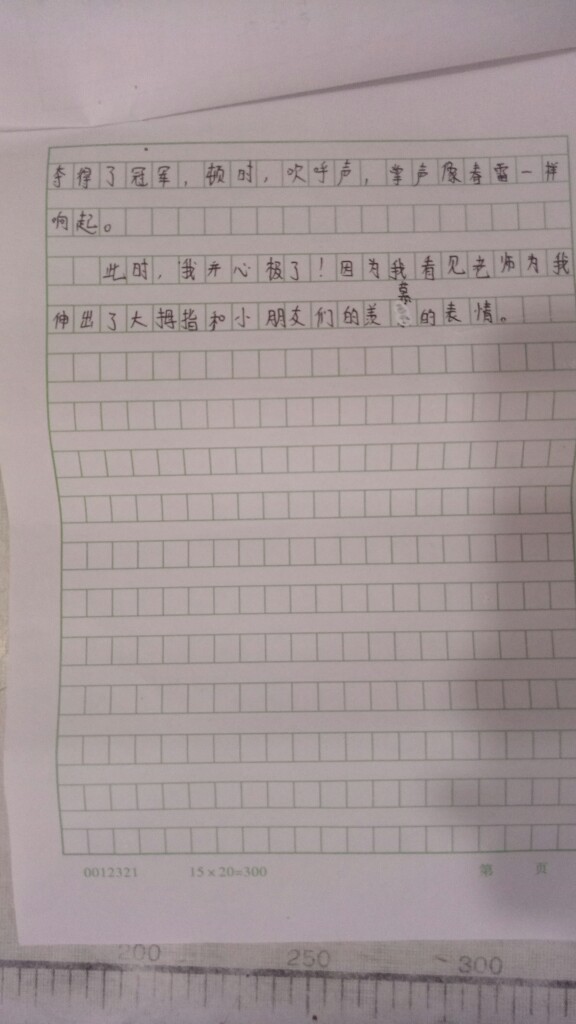 夺得了冠军，顿时，吹呼声，掌声像春雷一样
响起。
此时，我开心极了！因为我看见老师为我
伸出了大拇指和小朋友们的羡慕的表情。
0012321 15×20=300 第 页
200 250 300